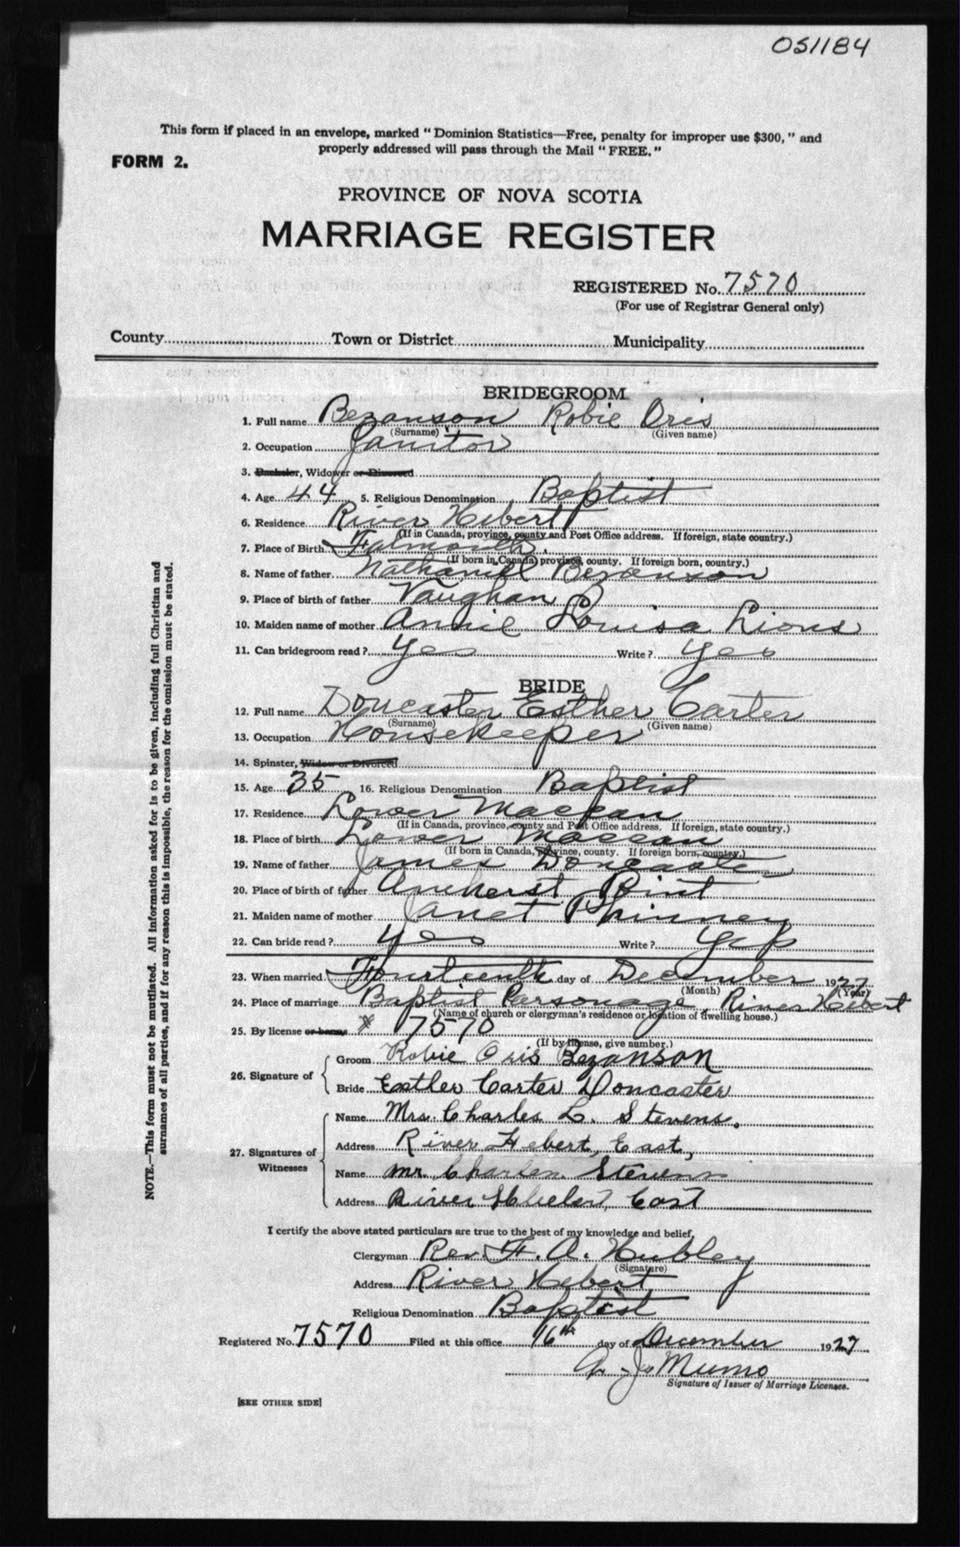 051184
This form if placed in an envelope, marked "Dominion Statistics—Free, penalty for improper use $300," and
properly addressed will pass through the Mail "FREE."
FORM 2.
PROVINCE OF NOVA SCOTIA
MARRIAGE REGISTER
REGISTERED No. 7570
(For use of Registrar General only)
County Town or District Municipality
BRIDEGROOM
1. Full name Bezanson Robie Oris
(Surname) (Given name)
2. Occupation Janitor
3. Bachelor, Widower or Divorced
4. Age 44 5. Religious Denomination Baptist
6. Residence River Hebert
(If in Canada, province, county and Post Office address. If foreign, state country.)
7. Place of Birth Falmouth
(If born in Canada, province, county. If foreign born, country.)
8. Name of father Nathaniel Bezanson
9. Place of birth of father Vaughan
10. Maiden name of mother Annie Louisa Lions
11. Can bridegroom read? Yes Write? Yes
BRIDE
12. Full name Doncaster Esther Carter
(Surname) (Given name)
13. Occupation Housekeeper
14. Spinster, Widow or Divorced
15. Age 35 16. Religious Denomination Baptist
17. Residence Lower Maccan
(If in Canada, province, county and Post Office address. If foreign, state country.)
18. Place of birth Lower Maccan
(If born in Canada, province, county. If foreign born, country.)
19. Name of father James Doncaster
20. Place of birth of father Amherst Point
21. Maiden name of mother Janet Phinney
22. Can bride read? Yes Write? Yes
23. When married Fourteenth day of December 1927
(Month) (Year)
24. Place of marriage Baptist Parsonage, River Hebert
(Name of church or clergyman's residence or location of dwelling house.)
25. By license or banns 7570
(If by license, give number.)
26. Signature of
Groom Robie Oris Bezanson
Bride Esther Carter Doncaster
27. Signatures of Witnesses
Name Mrs. Charles L. Stevens.
Address River Hebert, East,
Name Mr. Charles Stevens
Address River Hebert, East
I certify the above stated particulars are true to the best of my knowledge and belief.
Clergyman Rev. F. A. Hubley
(Signature)
Address River Hebert
Religious Denomination Baptist
Registered No. 7570 Filed at this office 16th day of December 1927
Munro
Signature of Issuer of Marriage Licenses.
[SEE OTHER SIDE]
NOTE.—This form must not be mutilated. All information asked for is to be given, including full Christian and
surnames of all parties, and if for any reason this is impossible, the reason for the omission must be stated.